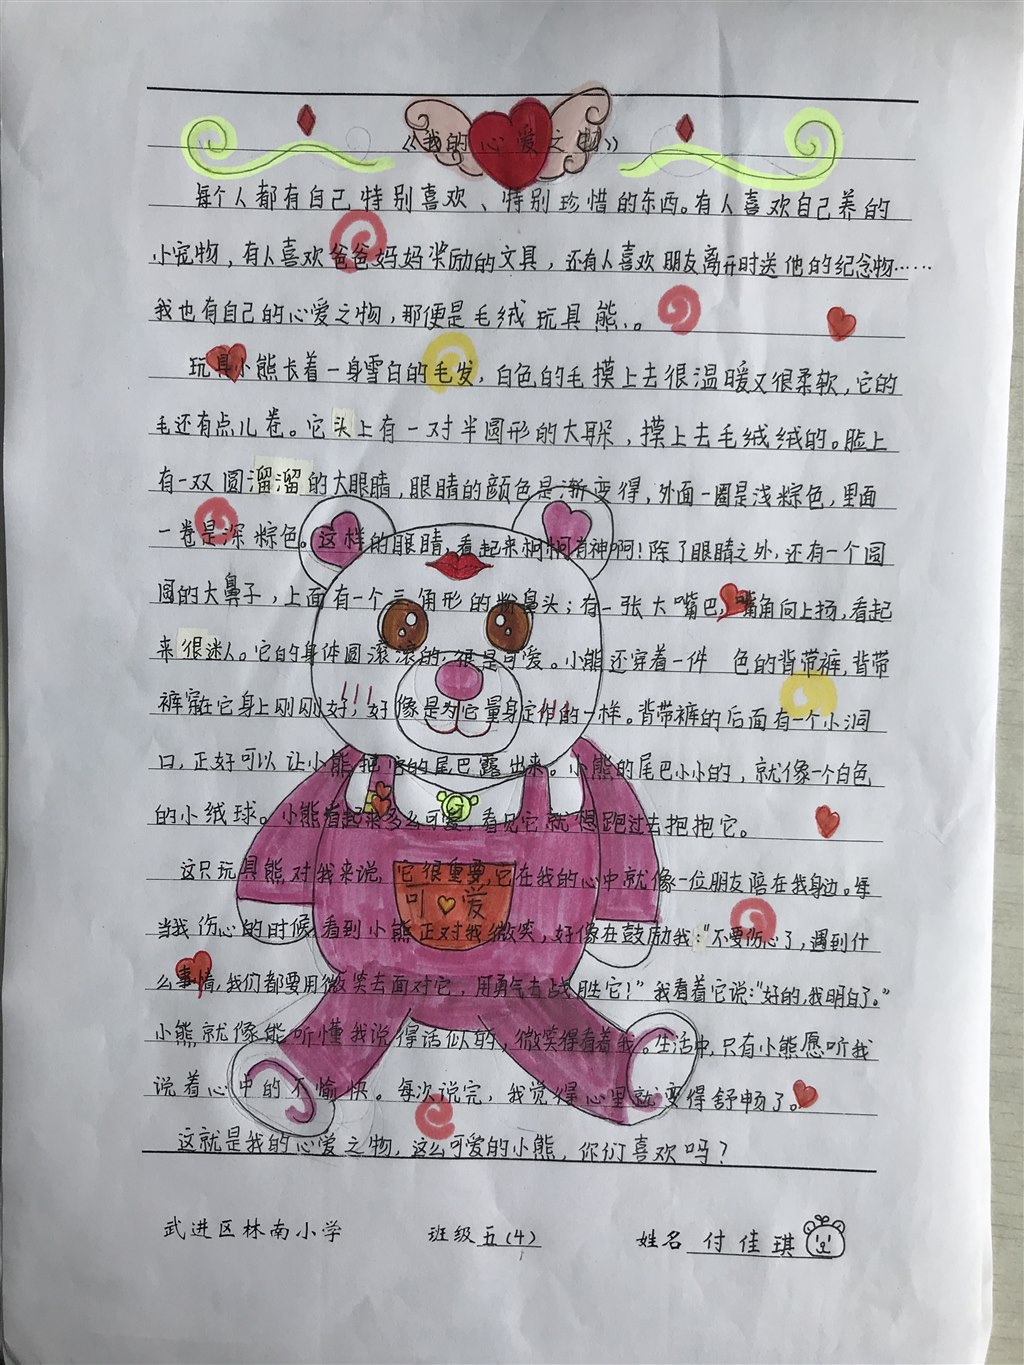 《我的心爱之物》
每个人都有自己特别喜欢、特别珍惜的东西。有人喜欢自己养的
小宠物，有人喜欢爸爸妈妈奖励的文具，还有人喜欢朋友离开时送他的纪念物……
我也有自己的心爱之物，那便是毛绒玩具熊、。
玩具小熊长着一身雪白的毛发，白色的毛摸上去很温暖又很柔软，它的
毛还有点儿卷。它头上有一对半圆形的大耳朵，摸上去毛绒绒的。脸上
有一双圆溜溜的大眼睛，眼睛的颜色是渐变得，外面一圈是浅粽色，里面
一卷是深粽色。这样的眼睛，看起来炯炯有神啊！除了眼睛之外，还有一个圆
圆的大鼻子，上面有一个三角形的粉鼻头；有一张大嘴巴，嘴角向上扬，看起
来很迷人。它的身体圆滚滚的，很是可爱。小熊还穿着一件 色的背带裤，背带
裤穿在它身上刚刚好，好像是为它量身定作的一样。背带裤的后面有一个小洞
口，正好可以让小熊把它的尾巴露出来。小熊的尾巴小小的，就像一个白色
的小绒球。小熊看起来多么可爱，看见它就想跑过去抱抱它。
这只玩具熊对我来说，它很重要，它在我的心中就像一位朋友陪在我身边。每
可爱
当我伤心的时候，看到小熊正对我微笑，好像在鼓励我：“不要伤心了，遇到什
么事情，我们都要用微笑去面对它，用勇气去战胜它！”我看着它说：“好的，我明白了。”
小熊就像能听懂我说得话似的，微笑得看着我。生活中，只有小熊愿听我
说着心中的不愉快。每次说完，我觉得心里就变得舒畅了。
这就是我的心爱之物，这么可爱的小熊，你们喜欢吗？
武进区林南小学 班级五(4) 姓名 付佳琪